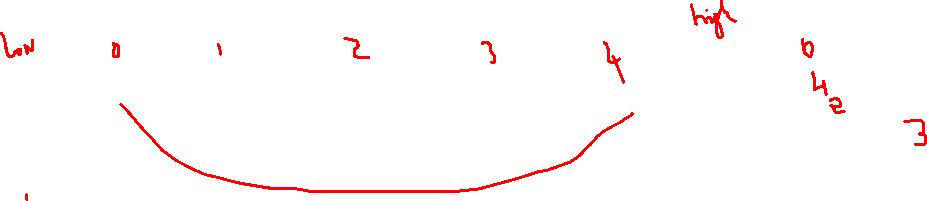 Low 0 1 2 3 4 high 0
4
2
3